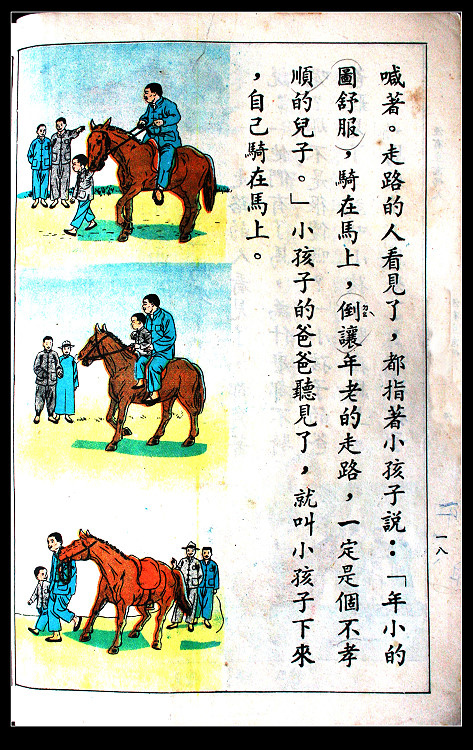 喊著。走路的人看見了，都指著小孩子說：「年小的
圖舒服，騎在馬上，倒讓年老的走路，一定是個不孝
順的兒子。」小孩子的爸爸聽見了，就叫小孩子下來
，自己騎在馬上。
一八